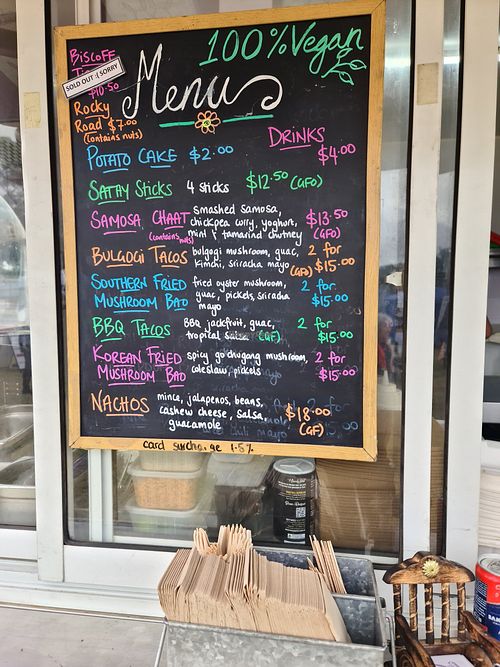 100% Vegan
Menu
BISCOFF
SOLD OUT :( SORRY
$10.50
ROCKY
ROAD $7.00
(contains nuts)
DRINKS
$4.00
POTATO CAKE $2.00
SATAY STICKS 4 sticks $12.50 (GFO)
SAMOSA CHAAT smashed samosa, $13.50
(contains nuts) chickpea curry, yoghurt, (GFO)
mint & tamarind chutney
BULGOGI TACOS bulgogi mushroom, guac, 2 for
kimchi, sriracha mayo (GFO) $15.00
SOUTHERN FRIED fried oyster mushroom, 2 for
MUSHROOM BAO guac, pickels, sriracha $15.00
mayo
BBQ TACOS BBQ jackfruit, guac, 2 for
tropical salsa (GF) $15.00
KOREAN FRIED spicy gochugang mushroom, 2 for
MUSHROOM BAO coleslaw, pickels $15.00
NACHOS mince, jalapenos, beans, $18.00
cashew cheese, salsa, (GF)
guacamole
card surcharge 1.5%